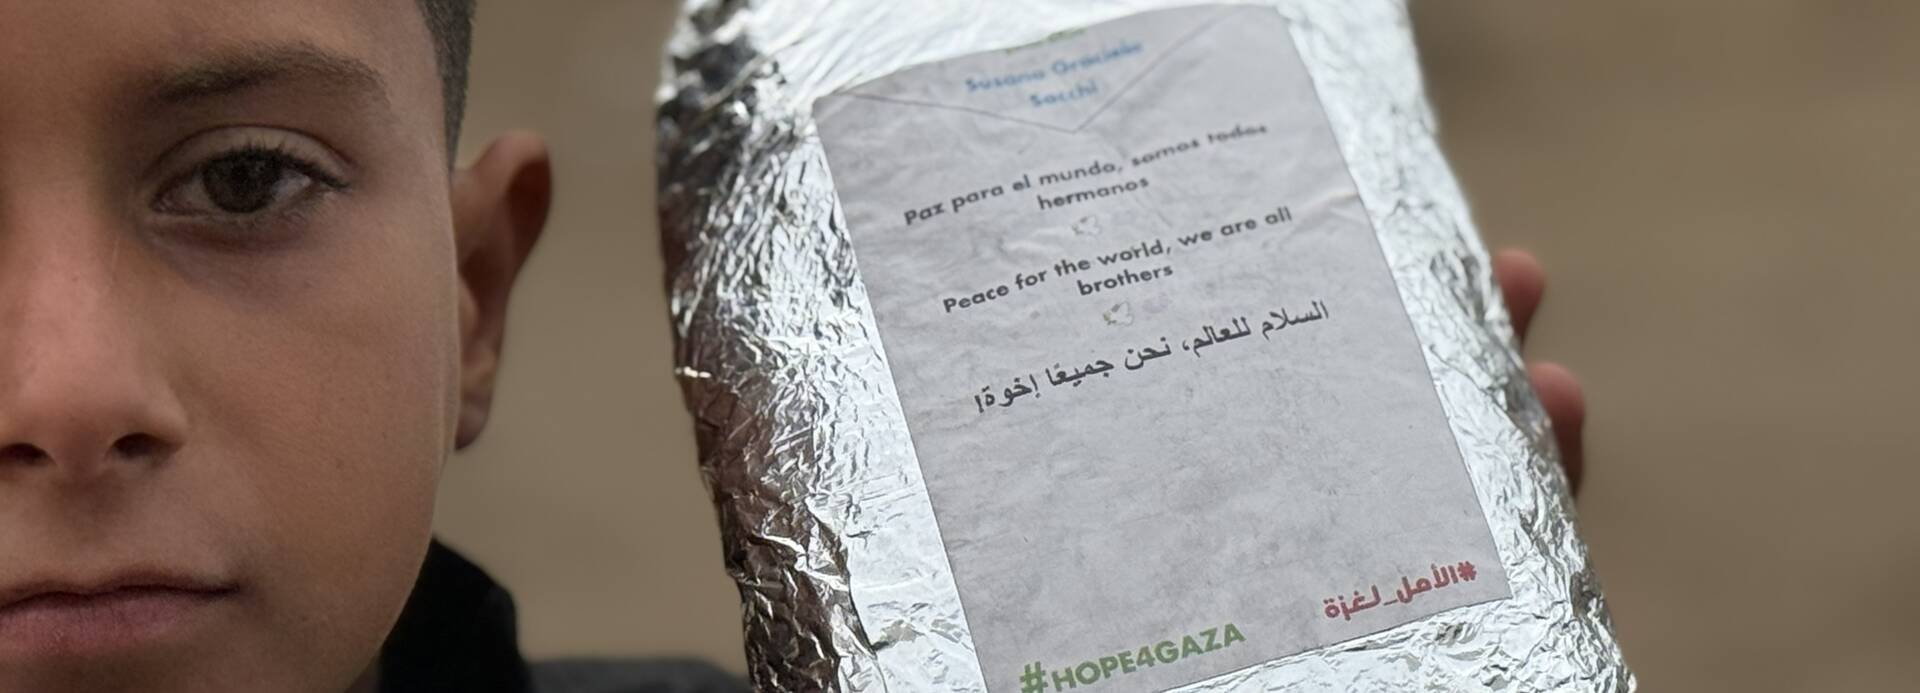 Susana Graciela
Sacchi
Paz para el mundo, somos todos
hermanos
Peace for the world, we are all
brothers
السلام للعالم، نحن جميعًا إخوة!
#الأمل_لغزة
#HOPE4GAZA